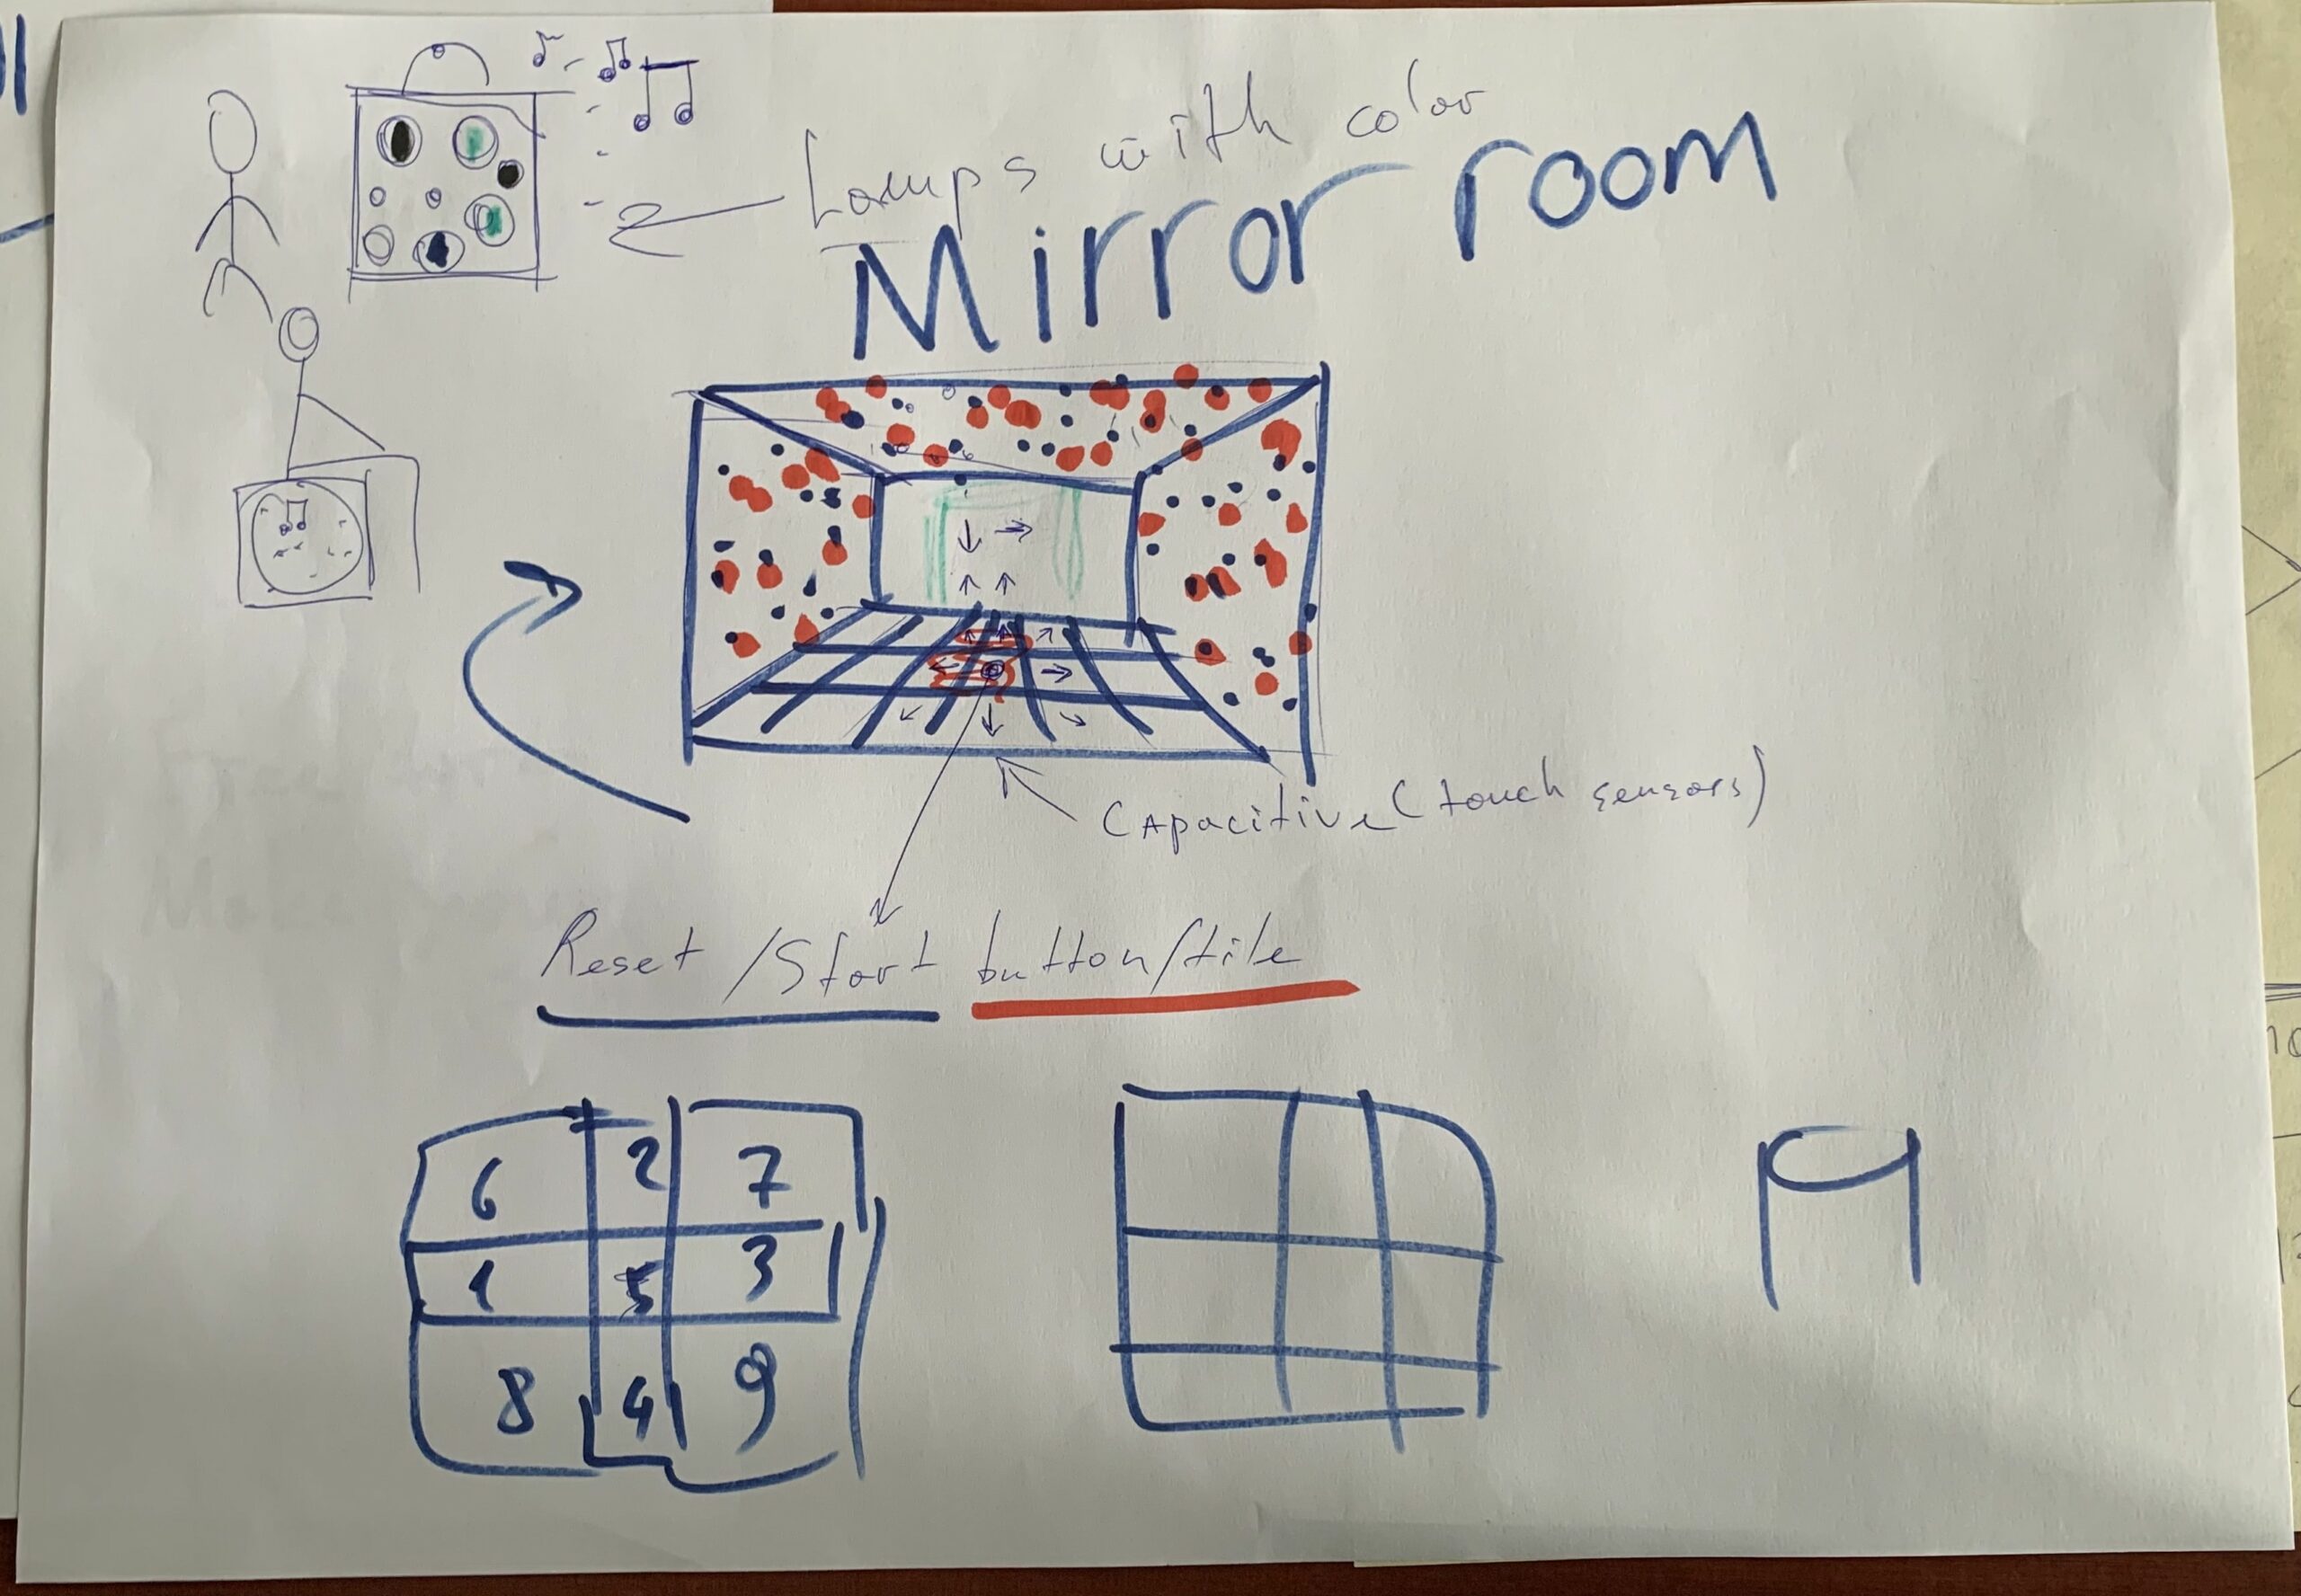 Lamps with color
Mirror room
CApacitive (touch sensors)
Reset /Start button/tile
6 2 7
1 5 3
8 4 9